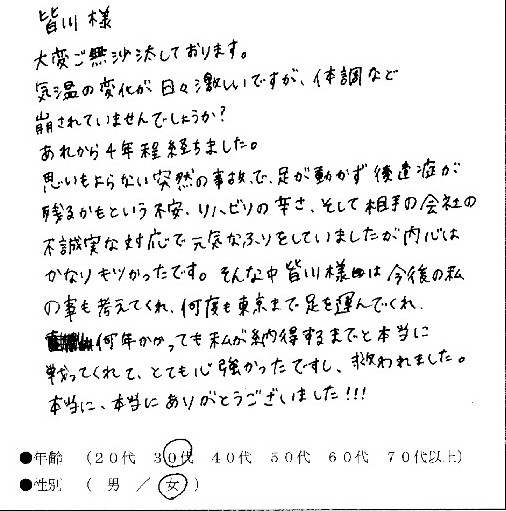 皆川様
大変ご無沙汰しております。
気温の変化が日々激しいですが、体調など
崩されていませんでしょうか?
あれから4年程経ちました。
思いもよらない突然の事故で、足が動かず後遺症が
残るかもという不安、リハビリの辛さ、そして相手の会社の
不誠実な対応で元気なふりをしていましたが内心は
かなりキツかったです。そんな中皆川様は今後の私
の事も考えてくれ、何度も東京まで足を運んでくれ、
何年かかっても私が納得するまでと本当に
戦ってくれて、とても心強かったですし、救われました。
本当に、本当にありがとうございました!!!
●年齢 (20代 30代 40代 50代 60代 70代以上)
●性別 ( 男 / 女 )